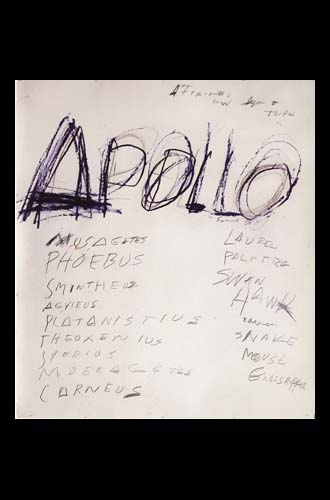 APOLLO
MUSAGETES
PHOEBUS
SMINTHEUS
AGYIEUS
PLATANISTIUS
THEOXENIUS
SPODIUS
MOERAGETES
CARNEUS
LAUREL
PALM TREE
SWAN
HAWK
SNAKE
MOUSE